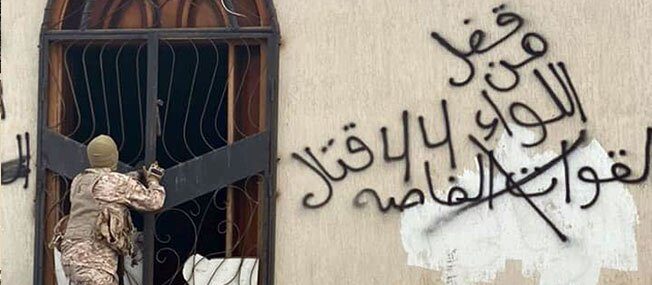 قفل
من
اللواء
444 قتال
لقوات الخاصه